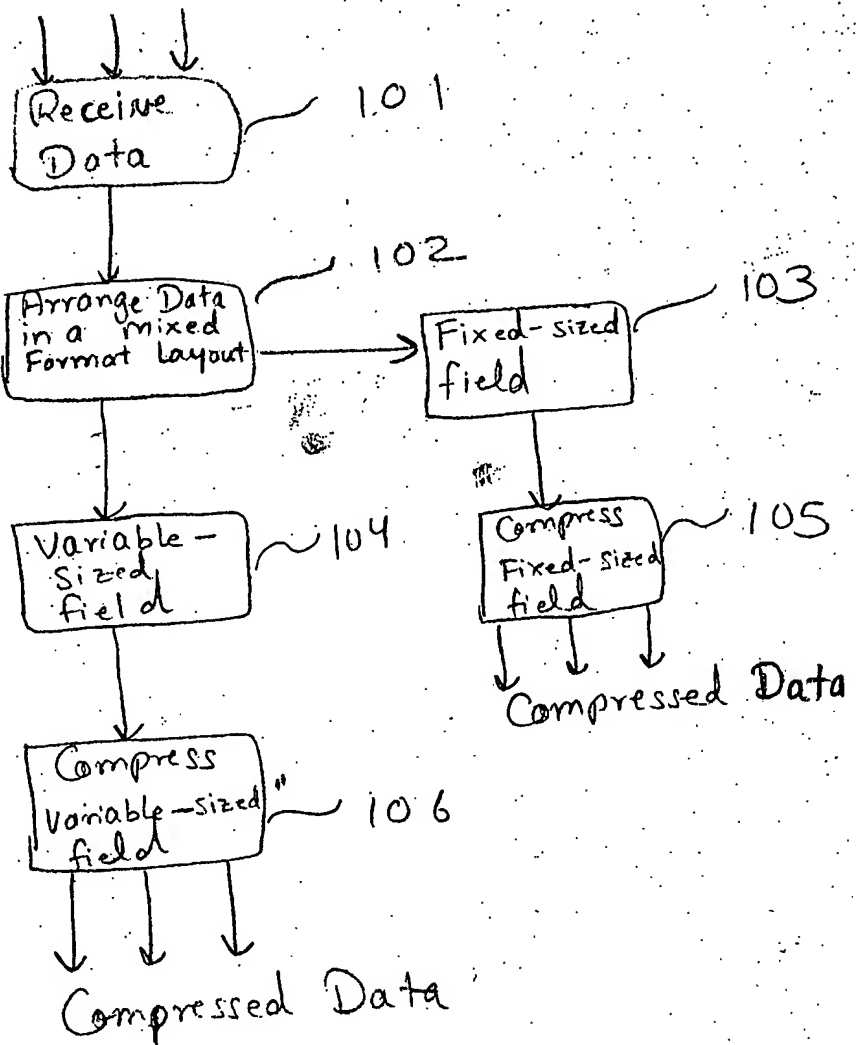 Receive
Data
101
Arrange Data
in a mixed
Format Layout
102
Fixed-sized
field
103
Variable-
Sized
field
104
Compress
Fixed-sized
field
105
Compressed Data
Compress
Variable-sized
field
106
Compressed Data